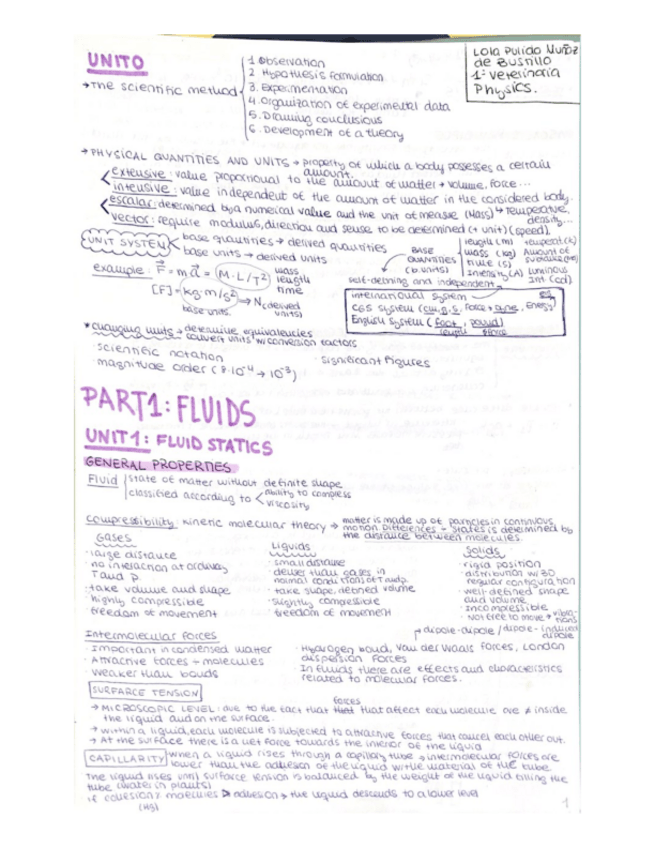 UNIT0
Lola Pulido Muñoz
de Bustillo
1º Veterinaria
Physics.
→ The scientific method
1 Observation
2 Hypothesis formulation
3. Experimentation
4. Organization of experimental data
5. Drawing conclusions
6. Development of a theory
→ PHYSICAL QUANTITIES AND UNITS → property of which a body possesses a certain
amount.
extensive: value proportional to the amount of matter → volume, force...
intensive: value independent of the amount of matter in the considered body.
→ Temperature, density...
escalar: determined by a numerical value and the unit of measure (Mass)
vector: require modulus, direction and sense to be determined (+ unit) (speed).
UNIT SYSTEM
base quantities → derived quantities
base units → derived units
BASE
QUANTITIES
(b. units)
length (m)
mass (kg)
time (s)
Intensity (A)
temperat. (k)
Amount of
Luminous
Int (cd)
self-defining and independent
example: F = m a = (M·L/T²) mass
length
time
[F] = kg·m/s² → N (derived
units)
base units.
international system
CGS system (cm, g, s, Force → dyne, Energy
English System (foot, pound)
length force
* Changing units → determine equivalencies
convert units w/ conversion factors
· scientific notation
· significant figures
· magnitude order (8·10⁻⁴ → 10⁻³)
PART1: FLUIDS
UNIT1: FLUID STATICS
GENERAL PROPERTIES
Fluid
state of matter without definite shape
classified according to
ability to compress
viscosity
Compressibility: kinetic molecular theory → matter is made up of particles in continuous
motion. Differences → states is determined by
the distance between molecules.
Gases
· large distance
· no interaction at ordinary
T and P.
· take volume and shape
· highly compressible
· freedom of movement
Liquids
· small distance
· denser than gases in
normal conditions of T and p.
· take shape, defined volume
· slightly compressible
· freedom of movement
Solids
· rigid position
· distribution w/ 3D
regular configuration
· well-defined shape
and volume
· Incompressible
· Not free to move → vibrations
Intermolecular forces
· Important in condensed matter
· Attractive forces → molecules
· Weaker than bonds
→ dipole-dipole / dipole-induced
dipole
· Hydrogen bond, Van der Waals forces, London
dispersion forces
· In fluids there are effects and characteristics
related to molecular forces.
SURFARCE TENSION
→ MICROSCOPIC LEVEL: due to the fact that forces that affect each molecule are ≠ inside
the liquid and on the surface.
→ within a liquid, each molecule is subjected to attractive forces that cancel each other out.
→ At the surface there is a net force towards the interior of the liquid
CAPILLARITY when a liquid rises through a capillary tube → intermolecular forces are
lower than the adhesion of the liquid w/ the material of the tube
The liquid rises until surface tension is balanced by the weight of the liquid filling the
tube (water in plants)
if cohesion molecules > adhesion → the liquid descends to a lower level
(Hg)
1